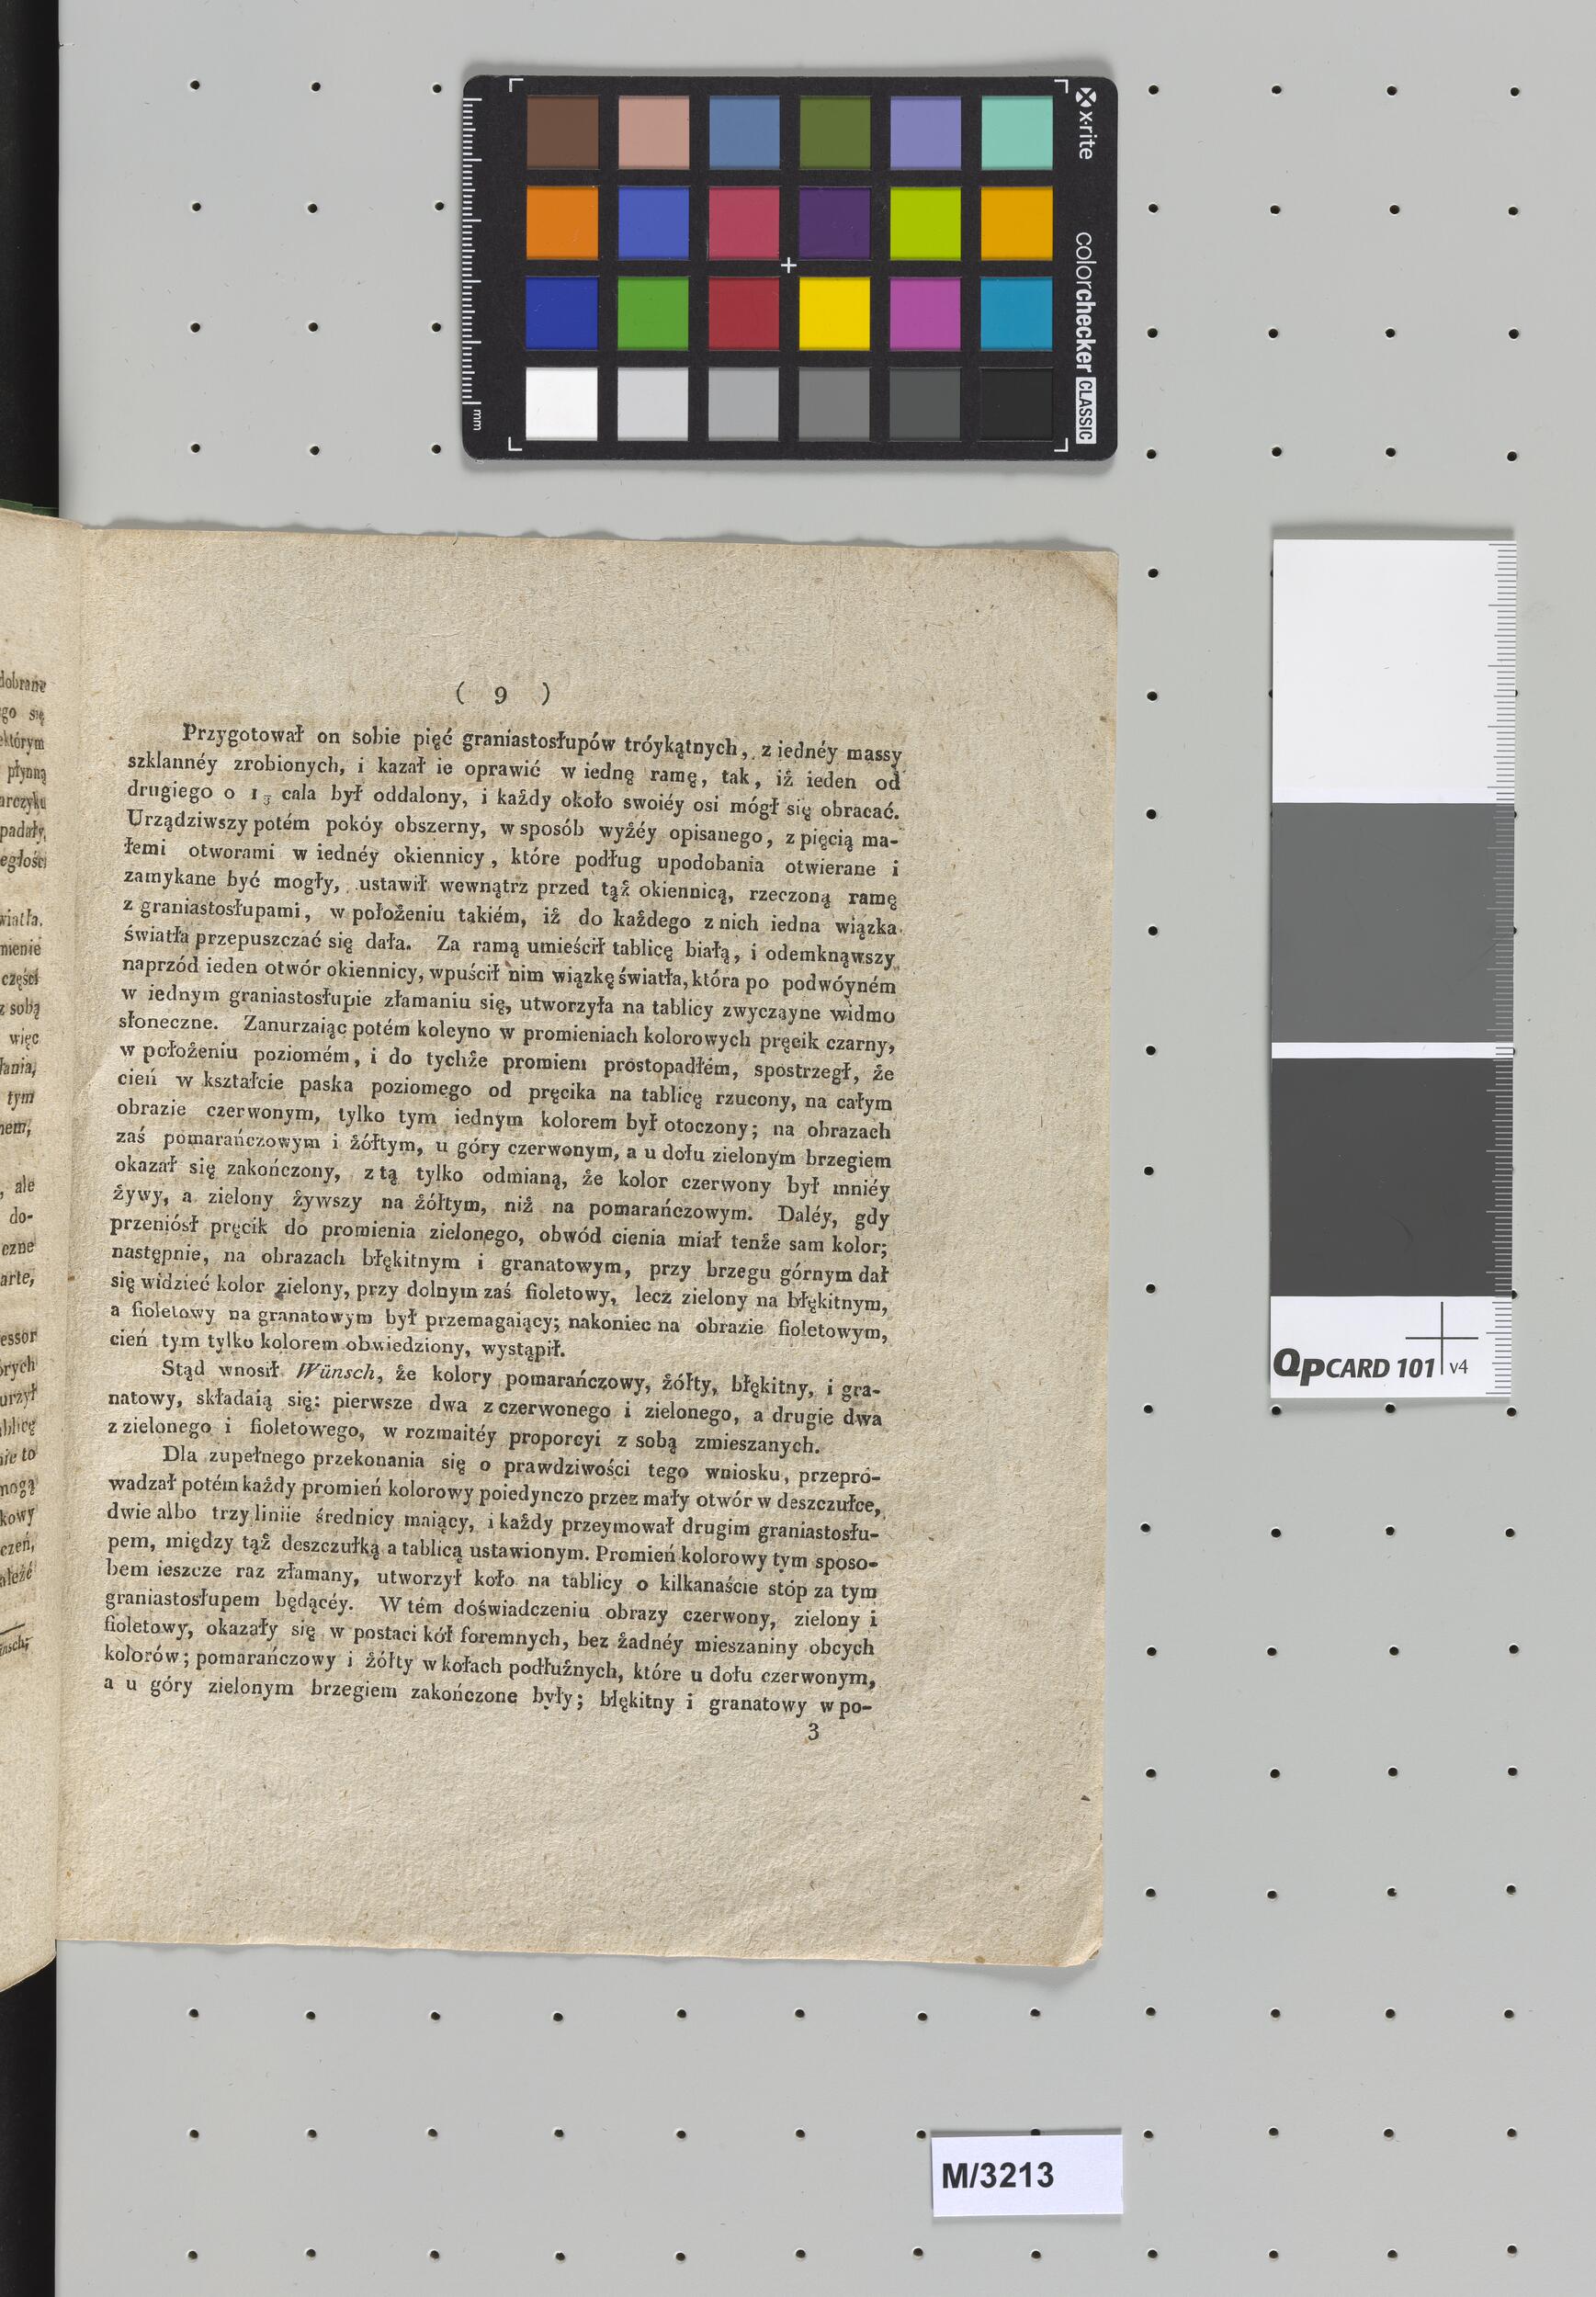 x·rite
colorchecker CLASSIC
mm
( 9 )
Przygotował on sobie pięć graniastosłupów tróykątnych, z iednéy massy
szklannéy zrobionych, i kazał ie oprawić w iednę ramę, tak, iż ieden od
drugiego o 1 cala był oddalony, i każdy około swoiéy osi mógł się obracać.
Urządziwszy potém pokóy obszerny, w sposób wyżéy opisanego, z pięcią ma-
łemi otworami w iednéy okiennicy, które podług upodobania otwierane i
zamykane być mogły, ustawił wewnątrz przed tąż okiennicą, rzeczoną ramę
z graniastosłupami, w położeniu takiém, iż do każdego z nich iedna wiązka
światła przepuszczać się dała. Za ramą umieścił tablicę białą, i odemknąwszy
naprzód ieden otwór okiennicy, wpuścił nim wiązkę światła, która po podwóyném
w iednym graniastosłupie złamaniu się, utworzyła na tablicy zwyczayne widmo
słoneczne. Zanurzaiąc potém koleyno w promieniach kolorowych pręcik czarny,
w położeniu poziomém, i do tychże promieni prostopadłém, spostrzegł, że
cień w kształcie paska poziomego od pręcika na tablicę rzucony, na całym
obrazie czerwonym, tylko tym iednym kolorem był otoczony; na obrazach
zaś pomarańczowym i żółtym, u góry czerwonym, a u dołu zielonym brzegiem
okazał się zakończony, z tą tylko odmianą, że kolor czerwony był mniéy
żywy, a zielony żywszy na żółtym, niż na pomarańczowym. Daléy, gdy
przeniósł pręcik do promienia zielonego, obwód cienia miał tenże sam kolor;
następnie, na obrazach błękitnym i granatowym, przy brzegu górnym dał
się widzieć kolor zielony, przy dolnym zaś fioletowy, lecz zielony na błękitnym,
a fioletowy na granatowym był przemagaiący; nakoniec na obrazie fioletowym,
cień tym tylko kolorem obwiedziony, wystąpił.
Stąd wnosił Wünsch, że kolory pomarańczowy, żółty, błękitny, i gra-
natowy, składaią się: pierwsze dwa z czerwonego i zielonego, a drugie dwa
z zielonego i fioletowego, w rozmaitéy proporcyi z sobą zmieszanych.
Dla zupełnego przekonania się o prawdziwości tego wniosku, przepro-
wadzał potém każdy promień kolorowy poiedynczo przez mały otwór w deszczułce,
dwie albo trzy liniie średnicy maiący, i każdy przeymował drugim graniastosłu-
pem, między tąż deszczułką a tablicą ustawionym. Promień kolorowy tym sposo-
bem ieszcze raz złamany, utworzył koło na tablicy o kilkanaście stóp za tym
graniastosłupem będącéy. W tém doświadczeniu obrazy czerwony, zielony i
fioletowy, okazały się w postaci kół foremnych, bez żadnéy mieszaniny obcych
kolorów; pomarańczowy i żółty w kołach podłużnych, które u dołu czerwonym,
a u góry zielonym brzegiem zakończone były; błękitny i granatowy w po-
3
QpCARD 101 v4
M/3213